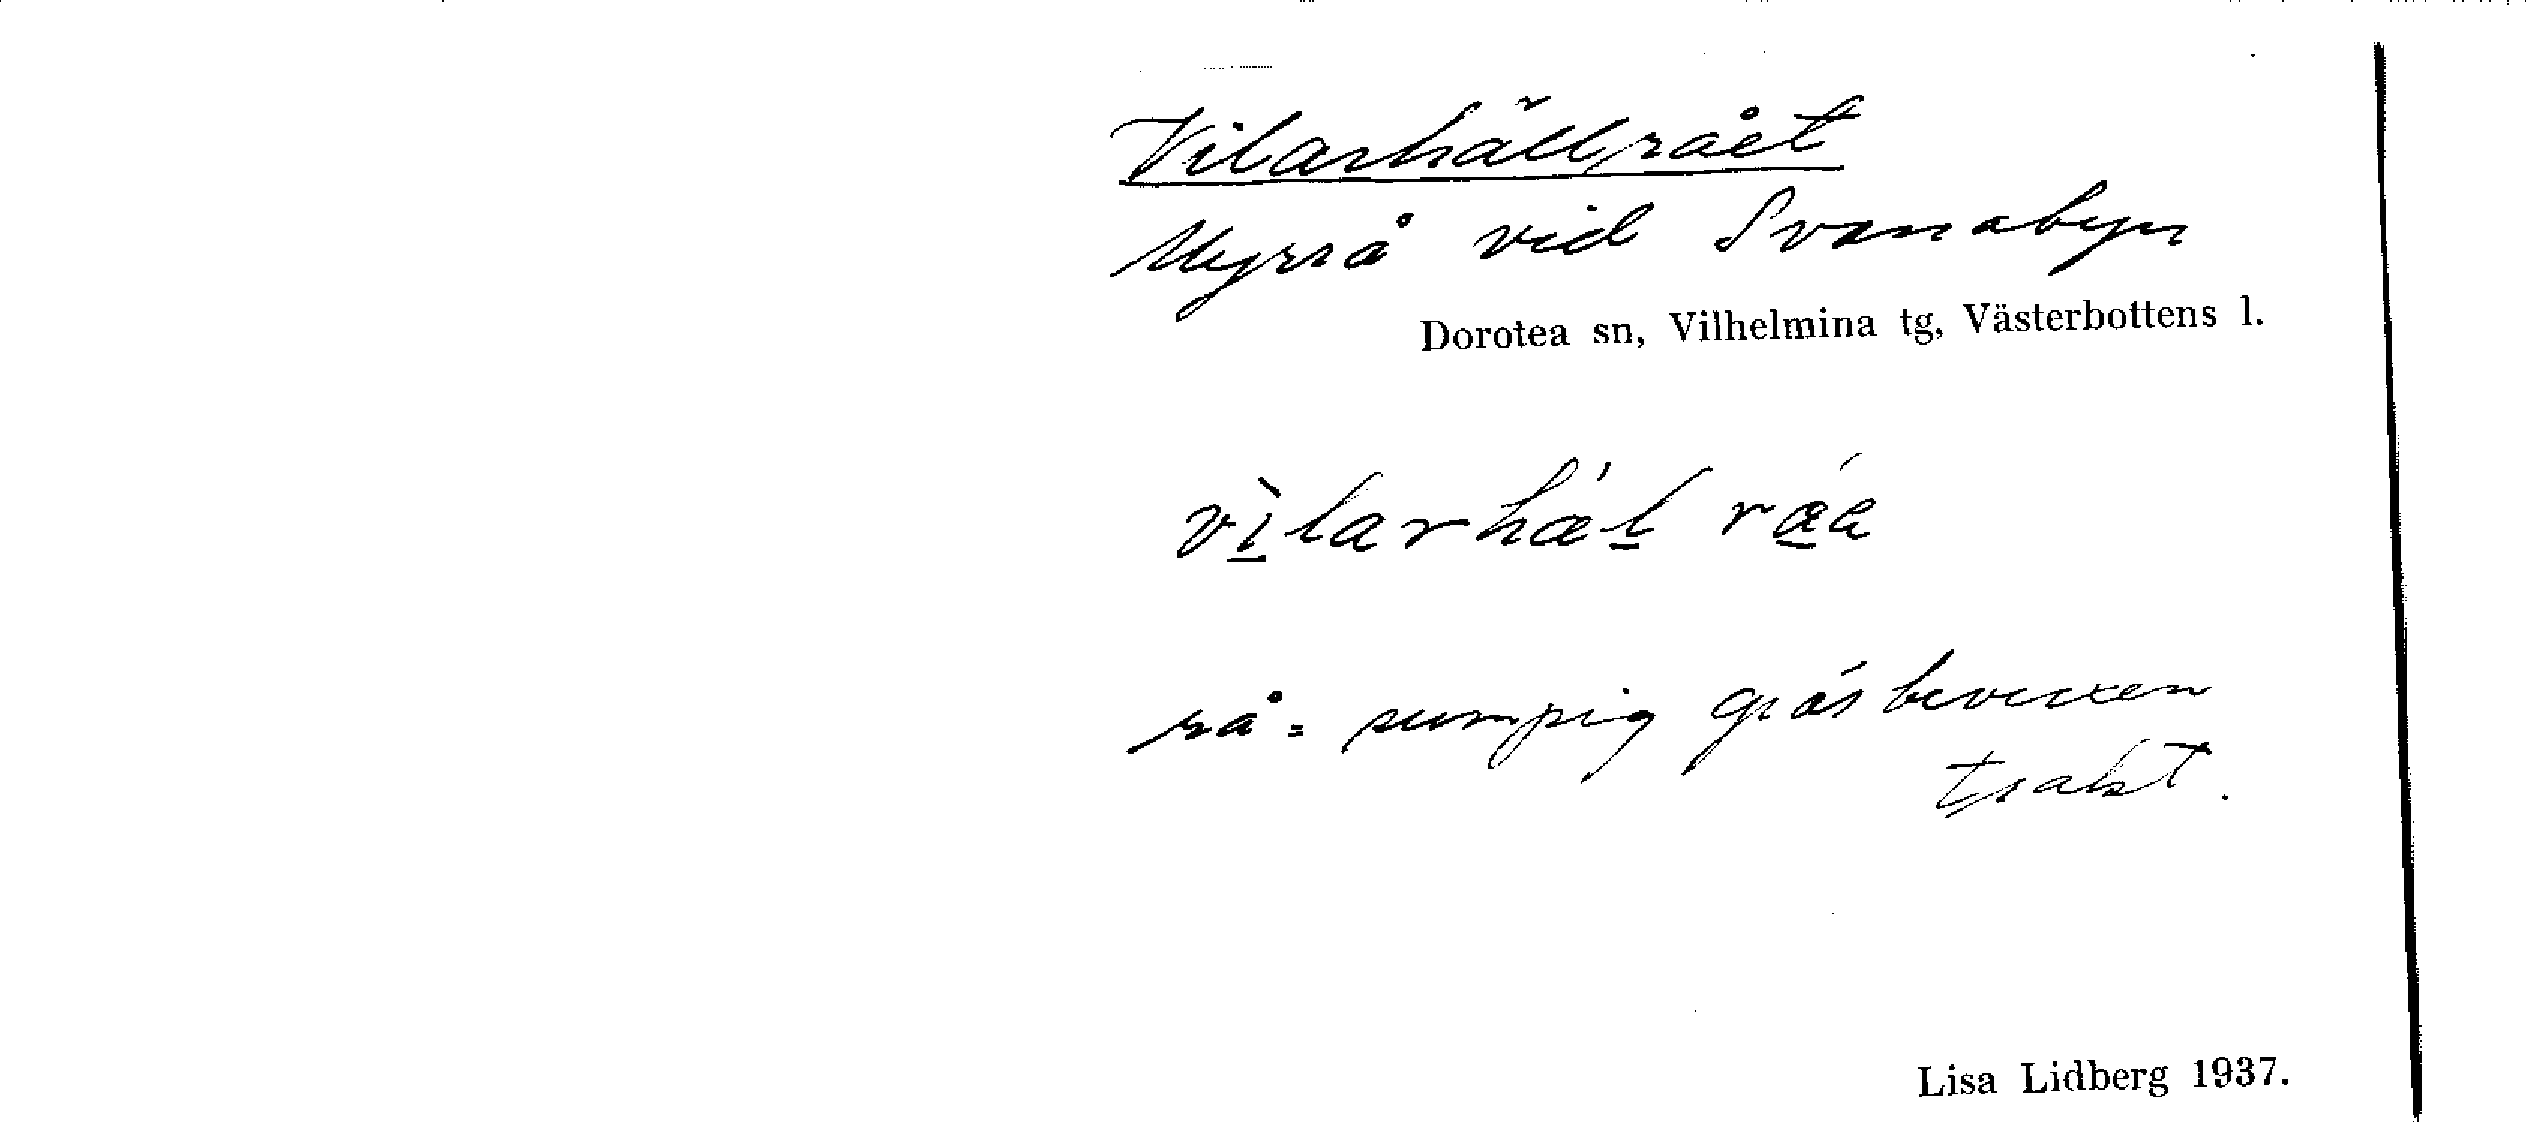 Vilarhällrået
Myrrå vid Svanabyn
Dorotea sn, Vilhelmina tg, Västerbottens l.
vìlarhæ̀l ræ̀a
rå = sumpig gräsbevuxen
trakt.
Lisa Lidberg 1937.